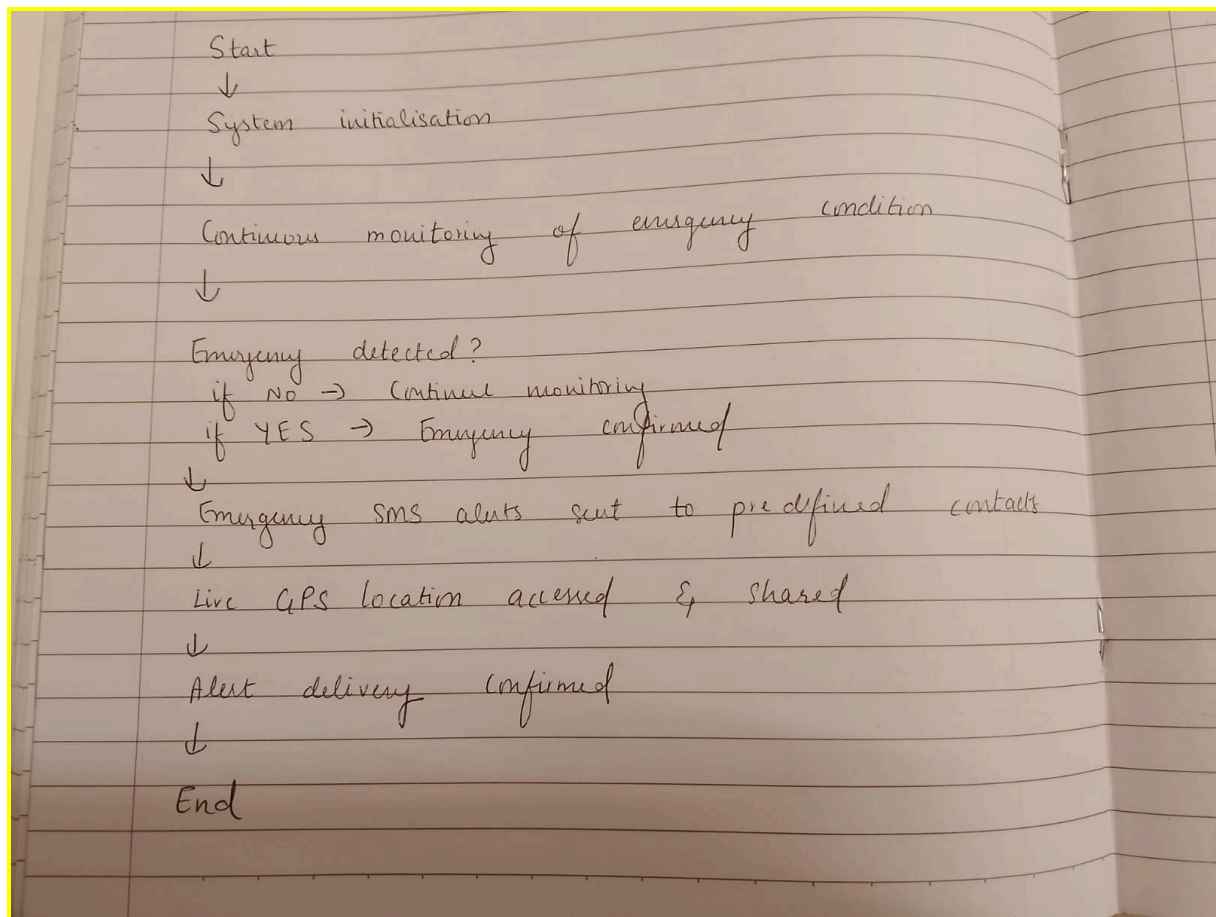 Start
↓
System initialisation
↓
Continuous monitoring of emergency condition
↓
Emergency detected?
if NO → Continue monitoring
if YES → Emergency confirmed
↓
Emergency SMS alerts sent to predefined contacts
↓
Live GPS location accessed & shared
↓
Alert delivery confirmed
↓
End